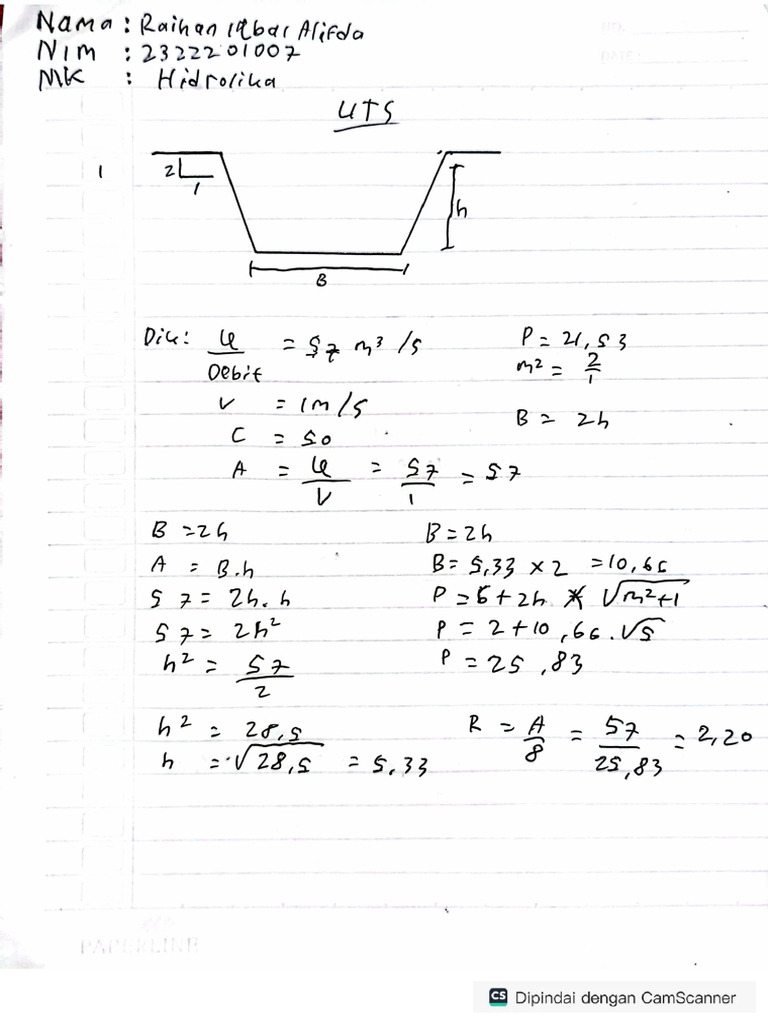 Nama : Raihan Iqbal Alifda
Nim : 2322201007
MK : Hidrolika
NO.
DATE:
UTS
1
2
1
h
B
Dik: Q = 57 m³/s
Debit
V = 1m/s
C = 50
A = Q/V = 57/1 = 57
P = 21,53
m² = 2/1
B = 2h
B = 2h
A = B.h
57 = 2h.h
57 = 2h²
h² = 57/2
h² = 28,5
h = √28,5 = 5,33
B = 2h
B = 5,33 x 2 = 10,66
P = B + 2h * √m²+1
P = 2 + 10,66.√5
P = 25,83
R = A/8 = 57/25,83 = 2,20
PAPERLINE
CS Dipindai dengan CamScanner